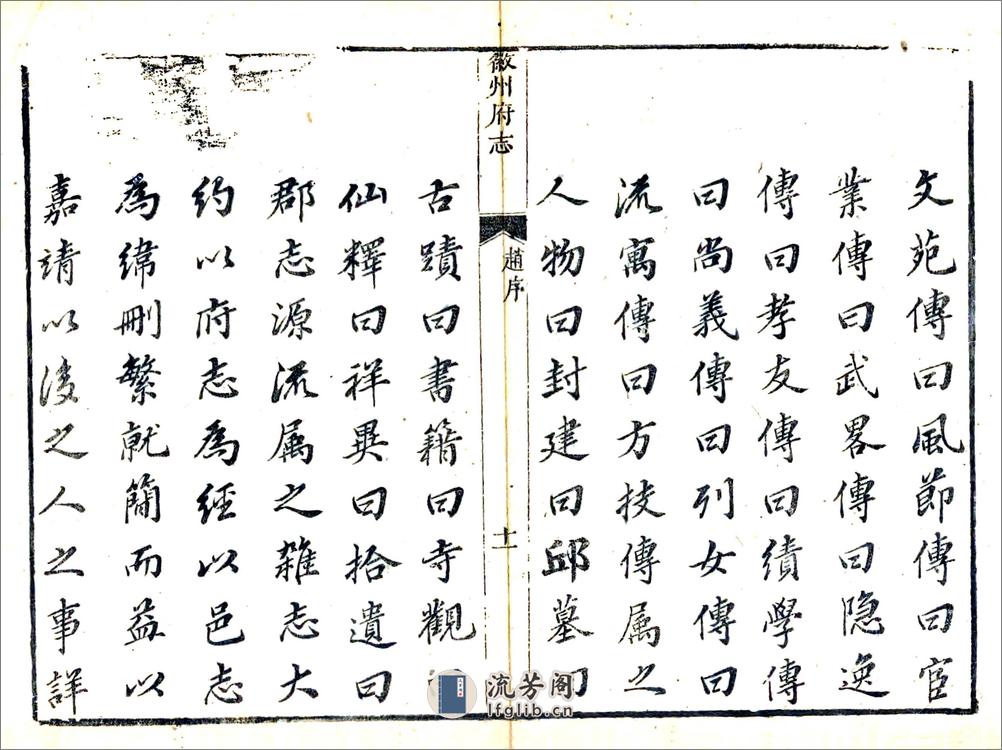 文苑傳曰風節傳曰宦
業傳曰武畧傳曰隐逸
傳曰孝友傳曰績學傳
曰尚義傳曰列女傳曰
流寓傳曰方技傳属之
人物曰封建曰邱墓曰
徽州府志
趙序
十一
古蹟曰書籍曰寺觀
仙釋曰祥異曰拾遺曰
郡志源流属之雜志大
約以府志為經以邑志
為緯刪繁就簡而益以
嘉靖以後之人之事詳
流芳阁
lfglib.cn